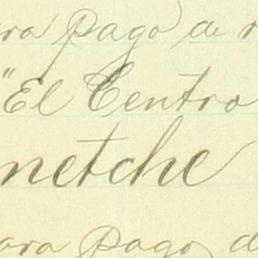 ara pago de r
"El Centro
netche
ara Pago d